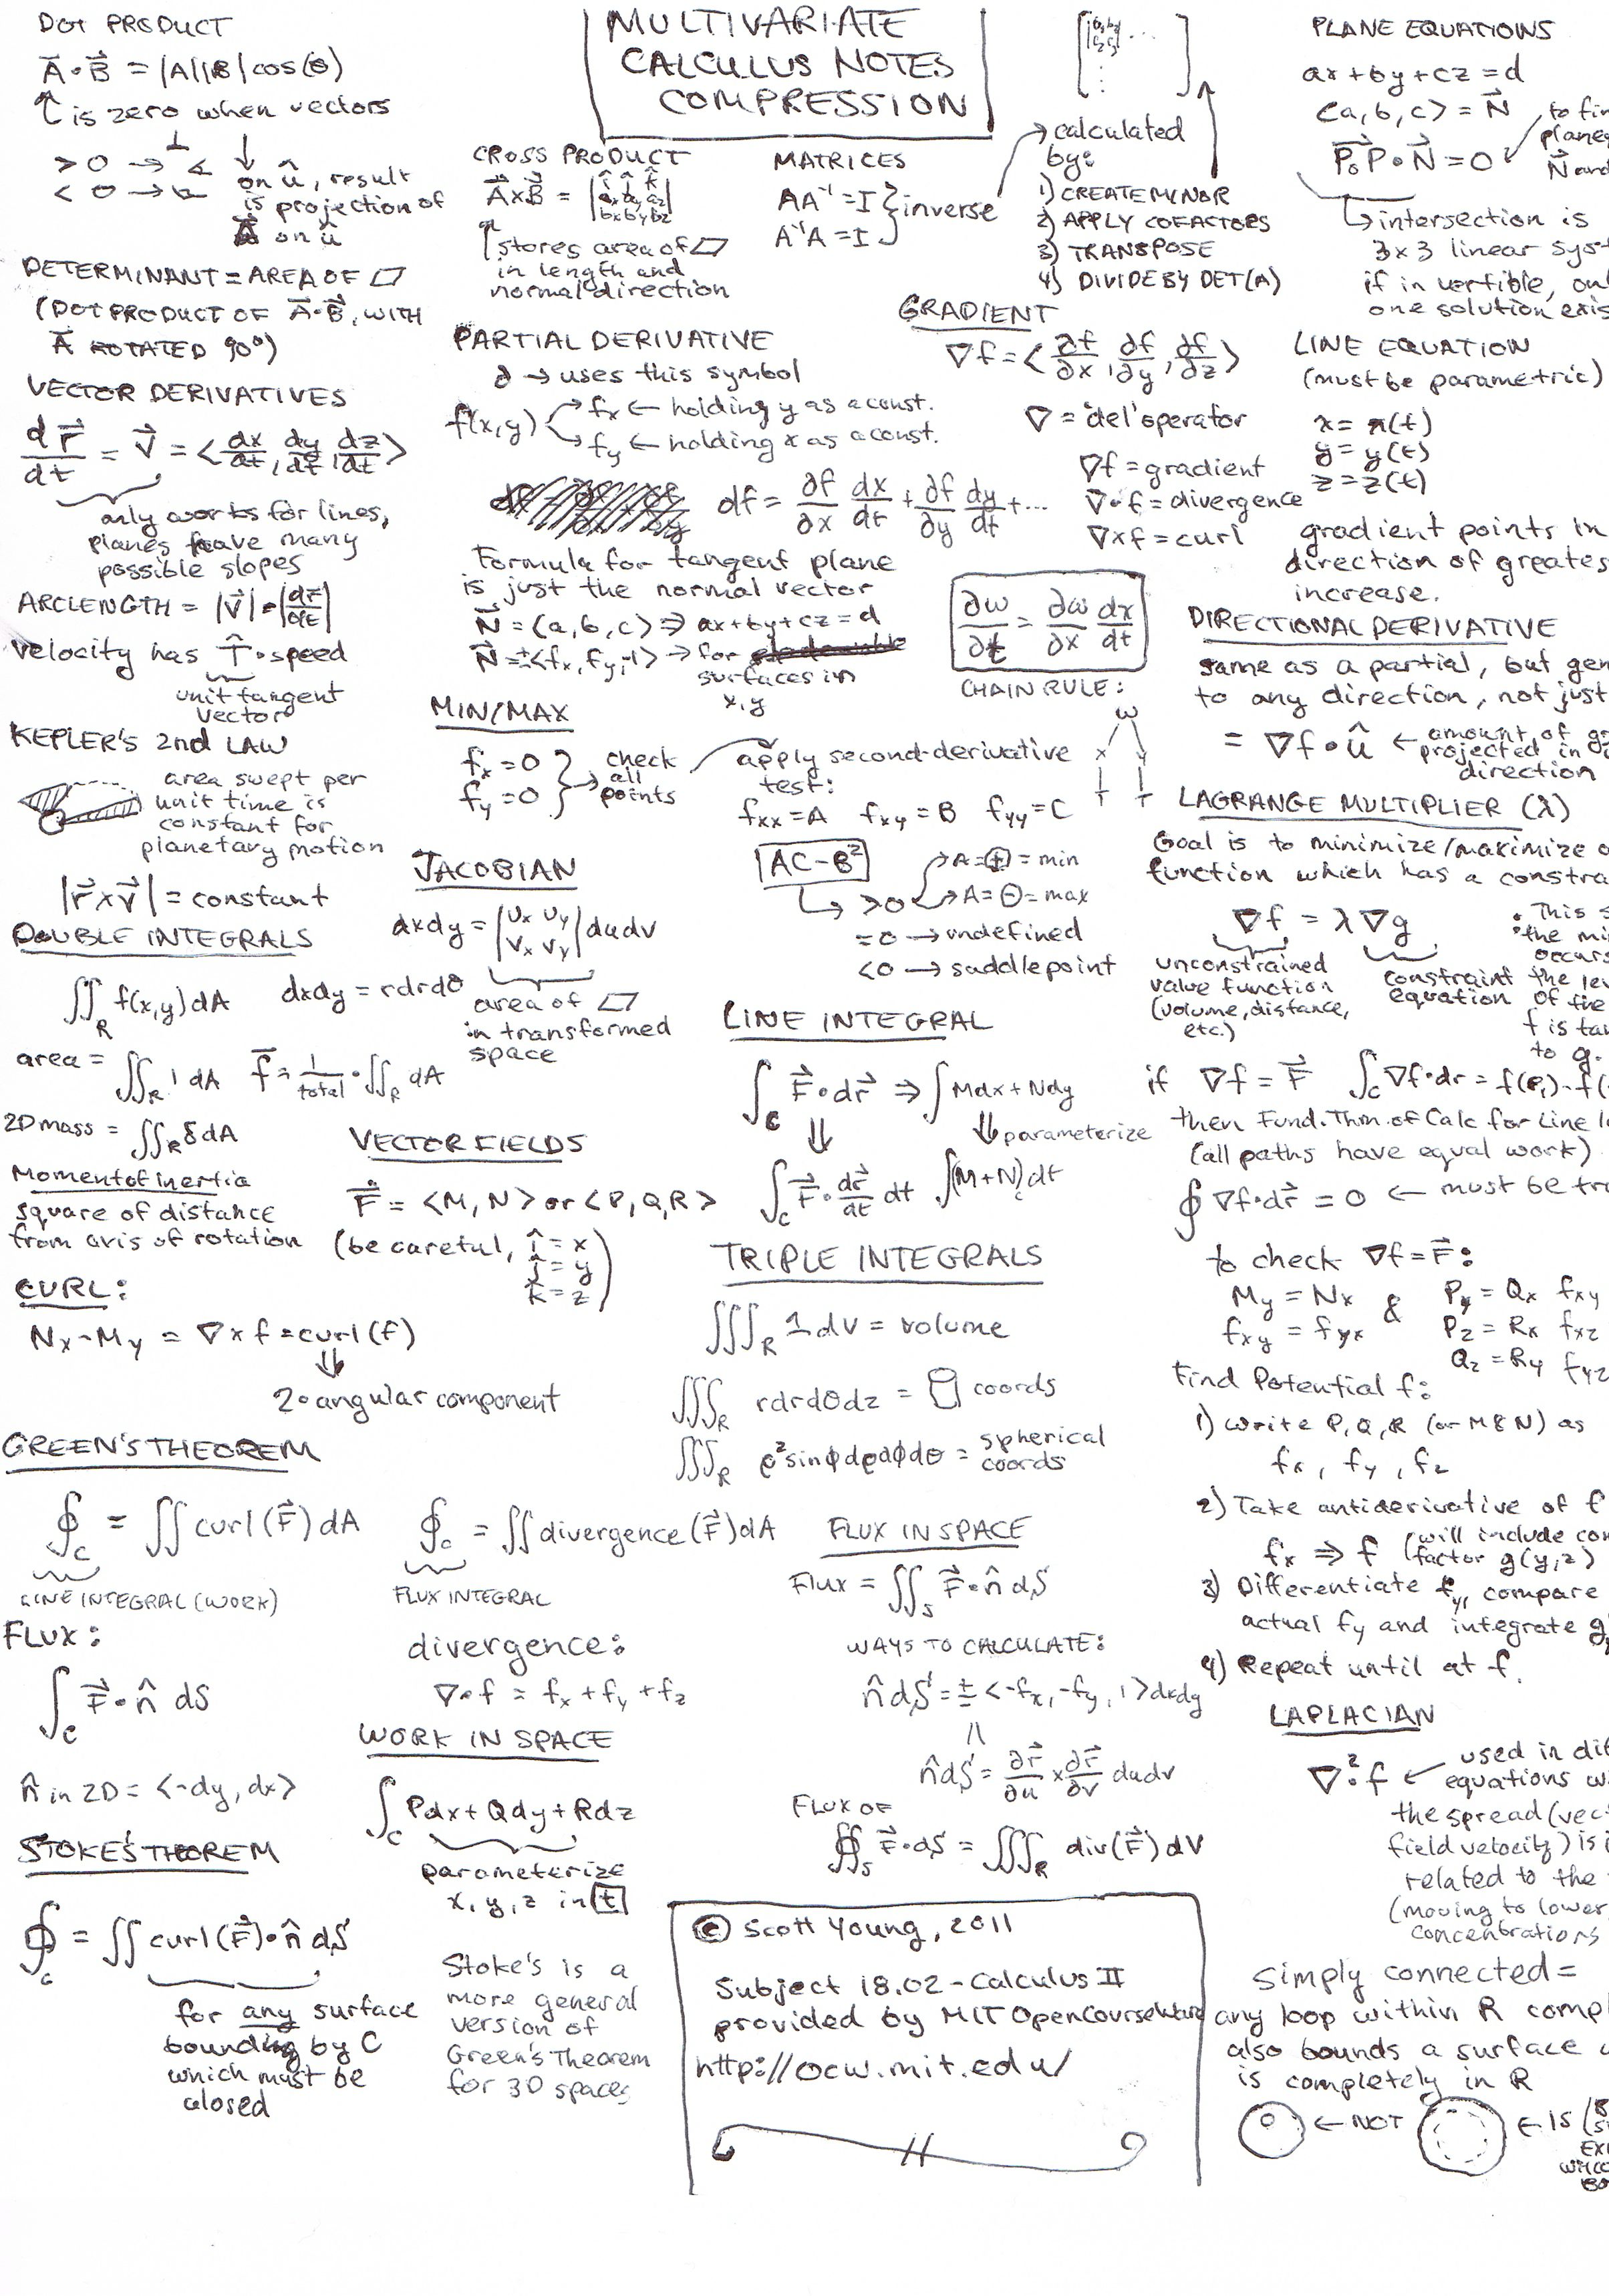 MULTIVARIATE
CALCULUS NOTES
COMPRESSION
DOT PRODUCT
A⃗•B⃗ = |A||B|cos(θ)
↑ is zero when vectors
⊥
> 0 →
< 0 →
on û, result
is projection of
A⃗ on û
DETERMINANT = AREA OF ▱
(DOT PRODUCT OF A⃗•B⃗, WITH
A⃗ ROTATED 90°)
VECTOR DERIVATIVES
dr⃗/dt = v⃗ = <dx/dt, dy/dt, dz/dt>
only works for lines,
planes have many
possible slopes
ARCLENGTH = |v⃗| = |dr⃗/dt|
velocity has T̂•speed
unit tangent
vector
KEPLER'S 2nd LAW
area swept per
unit time is
constant for
planetary motion
|r⃗×v⃗| = constant
DOUBLE INTEGRALS
∬R f(x,y)dA dxdy = rdrdθ
area = ∬R 1 dA f̄ = 1/total • ∬R dA
2D mass = ∬R δdA
Moment of inertia
square of distance
from axis of rotation
CURL:
Nx-My = ∇×f = curl(f)
⇓
2•angular component
GREEN'S THEOREM
∮C = ∬curl(F⃗)dA
LINE INTEGRAL (WORK)
∮C = ∬divergence(F⃗)dA
FLUX INTEGRAL
FLUX:
∫C F⃗•n̂ dS
n̂ in 2D = <-dy, dx>
STOKE'S THEOREM
∮C = ∬curl(F⃗)•n̂ dS
for any surface
bounding by C
which must be
closed
CROSS PRODUCT
A⃗×B⃗ = |î ĵ k̂|
|ax ay az|
|bx by bz|
stores area of ▱
in length and
normal direction
MATRICES
AA⁻¹ = I
A⁻¹A = I
inverse
calculated
by:
1) CREATE MINOR
2) APPLY COFACTORS
3) TRANSPOSE
4) DIVIDE BY DET(A)
PARTIAL DERIVATIVE
∂ → uses this symbol
f(x,y)
fx ← holding y as a const.
fy ← holding x as a const.
df = ∂f/∂x dx/dt + ∂f/∂y dy/dt + ...
Formula for tangent plane
is just the normal vector
N⃗ = <a,b,c> ⇒ ax+by+cz = d
N⃗ = ±<fx, fy, -1> → for
surfaces in
x,y
MIN/MAX
fx = 0
fy = 0
check
all
points
apply second-derivative
test:
fxx = A fxy = B fyy = C
AC-B²
> 0
A = ⊕ = min
A = ⊖ = max
= 0 → undefined
< 0 → saddlepoint
JACOBIAN
dxdy = |ux uy| dudv
|vx vy|
area of ▱
in transformed
space
VECTOR FIELDS
F⃗ = <M, N> or <P, Q, R>
(be careful, î = x
ĵ = y
k̂ = z)
GRADIENT
∇f = <∂f/∂x, ∂f/∂y, ∂f/∂z>
∇ = 'del' operator
∇f = gradient
∇•f = divergence
∇×f = curl
∂w/∂t = ∂w/∂x dx/dt
CHAIN RULE:
w
x y
t t
LINE INTEGRAL
∫C F⃗•dr⃗ ⇒ ∫Mdx+Ndy
⇓ ⇓ parameterize
∫C F⃗•dr⃗/dt dt ∫C(M+N)dt
TRIPLE INTEGRALS
∭R 1dV = volume
∭R rdrdθdz = coords
∭R ρ²sinφdρdφdθ = spherical
coords
divergence:
∇•f = fx+fy+fz
WORK IN SPACE
∫C Pdx+Qdy+Rdz
parameterize
x, y, z in t
Stoke's is a
more general
version of
Green's Theorem
for 3D spaces
FLUX IN SPACE
Flux = ∬S F⃗•n̂ dS
WAYS TO CALCULATE:
n̂dS = ±<-fx, -fy, 1>dxdy
n̂dS = ∂r⃗/∂u × ∂r⃗/∂v dudv
FLUX OF
∯S F⃗•dS = ∭R div(F⃗)dV
PLANE EQUATIONS
ax+by+cz = d
<a,b,c> = N⃗
P₀P•N⃗ = 0
N⃗ and
intersection is
3x3 linear
if invertible,
one solution
LINE EQUATION
(must be parametric)
x = x(t)
y = y(t)
z = z(t)
gradient points in
direction of
increase.
DIRECTIONAL DERIVATIVE
same as a partial, but
to any direction, not just
= ∇f•û ← amount of
projected in
direction
LAGRANGE MULTIPLIER (λ)
Goal is to minimize/maximize
function which has a
∇f = λ∇g
unconstrained
value function
(volume, distance,
etc.)
constraint
equation
This
the
occurs
the
of the
f is
to g.
if ∇f = F⃗ ∫C∇f•dr = f(P₁)-f(
then Fund. Thm. of Calc for Line
(all paths have equal work)
∮∇f•dr⃗ = 0 ← must be
to check ∇f = F⃗:
My = Nx & Py = Qx fxy
fxy = fyx Pz = Rx fxz
Qz = Ry fyz
Find Potential f:
1) Write P, Q, R (or M & N) as
fx, fy, fz
2) Take antiderivative of f
fx ⇒ f (will include
factor g(y,z)
3) Differentiate fy, compare
actual fy and integrate g
4) Repeat until at f.
LAPLACIAN
∇²•f ← used in
equations
the spread (
field velocity) is
related to the
(moving to lower
concentrations
Simply connected =
any loop within R
also bounds a surface
is completely in R
← NOT ← IS
© Scott Young, 2011
Subject 18.02 - Calculus II
provided by MIT OpenCourseWare
http://ocw.mit.edu/